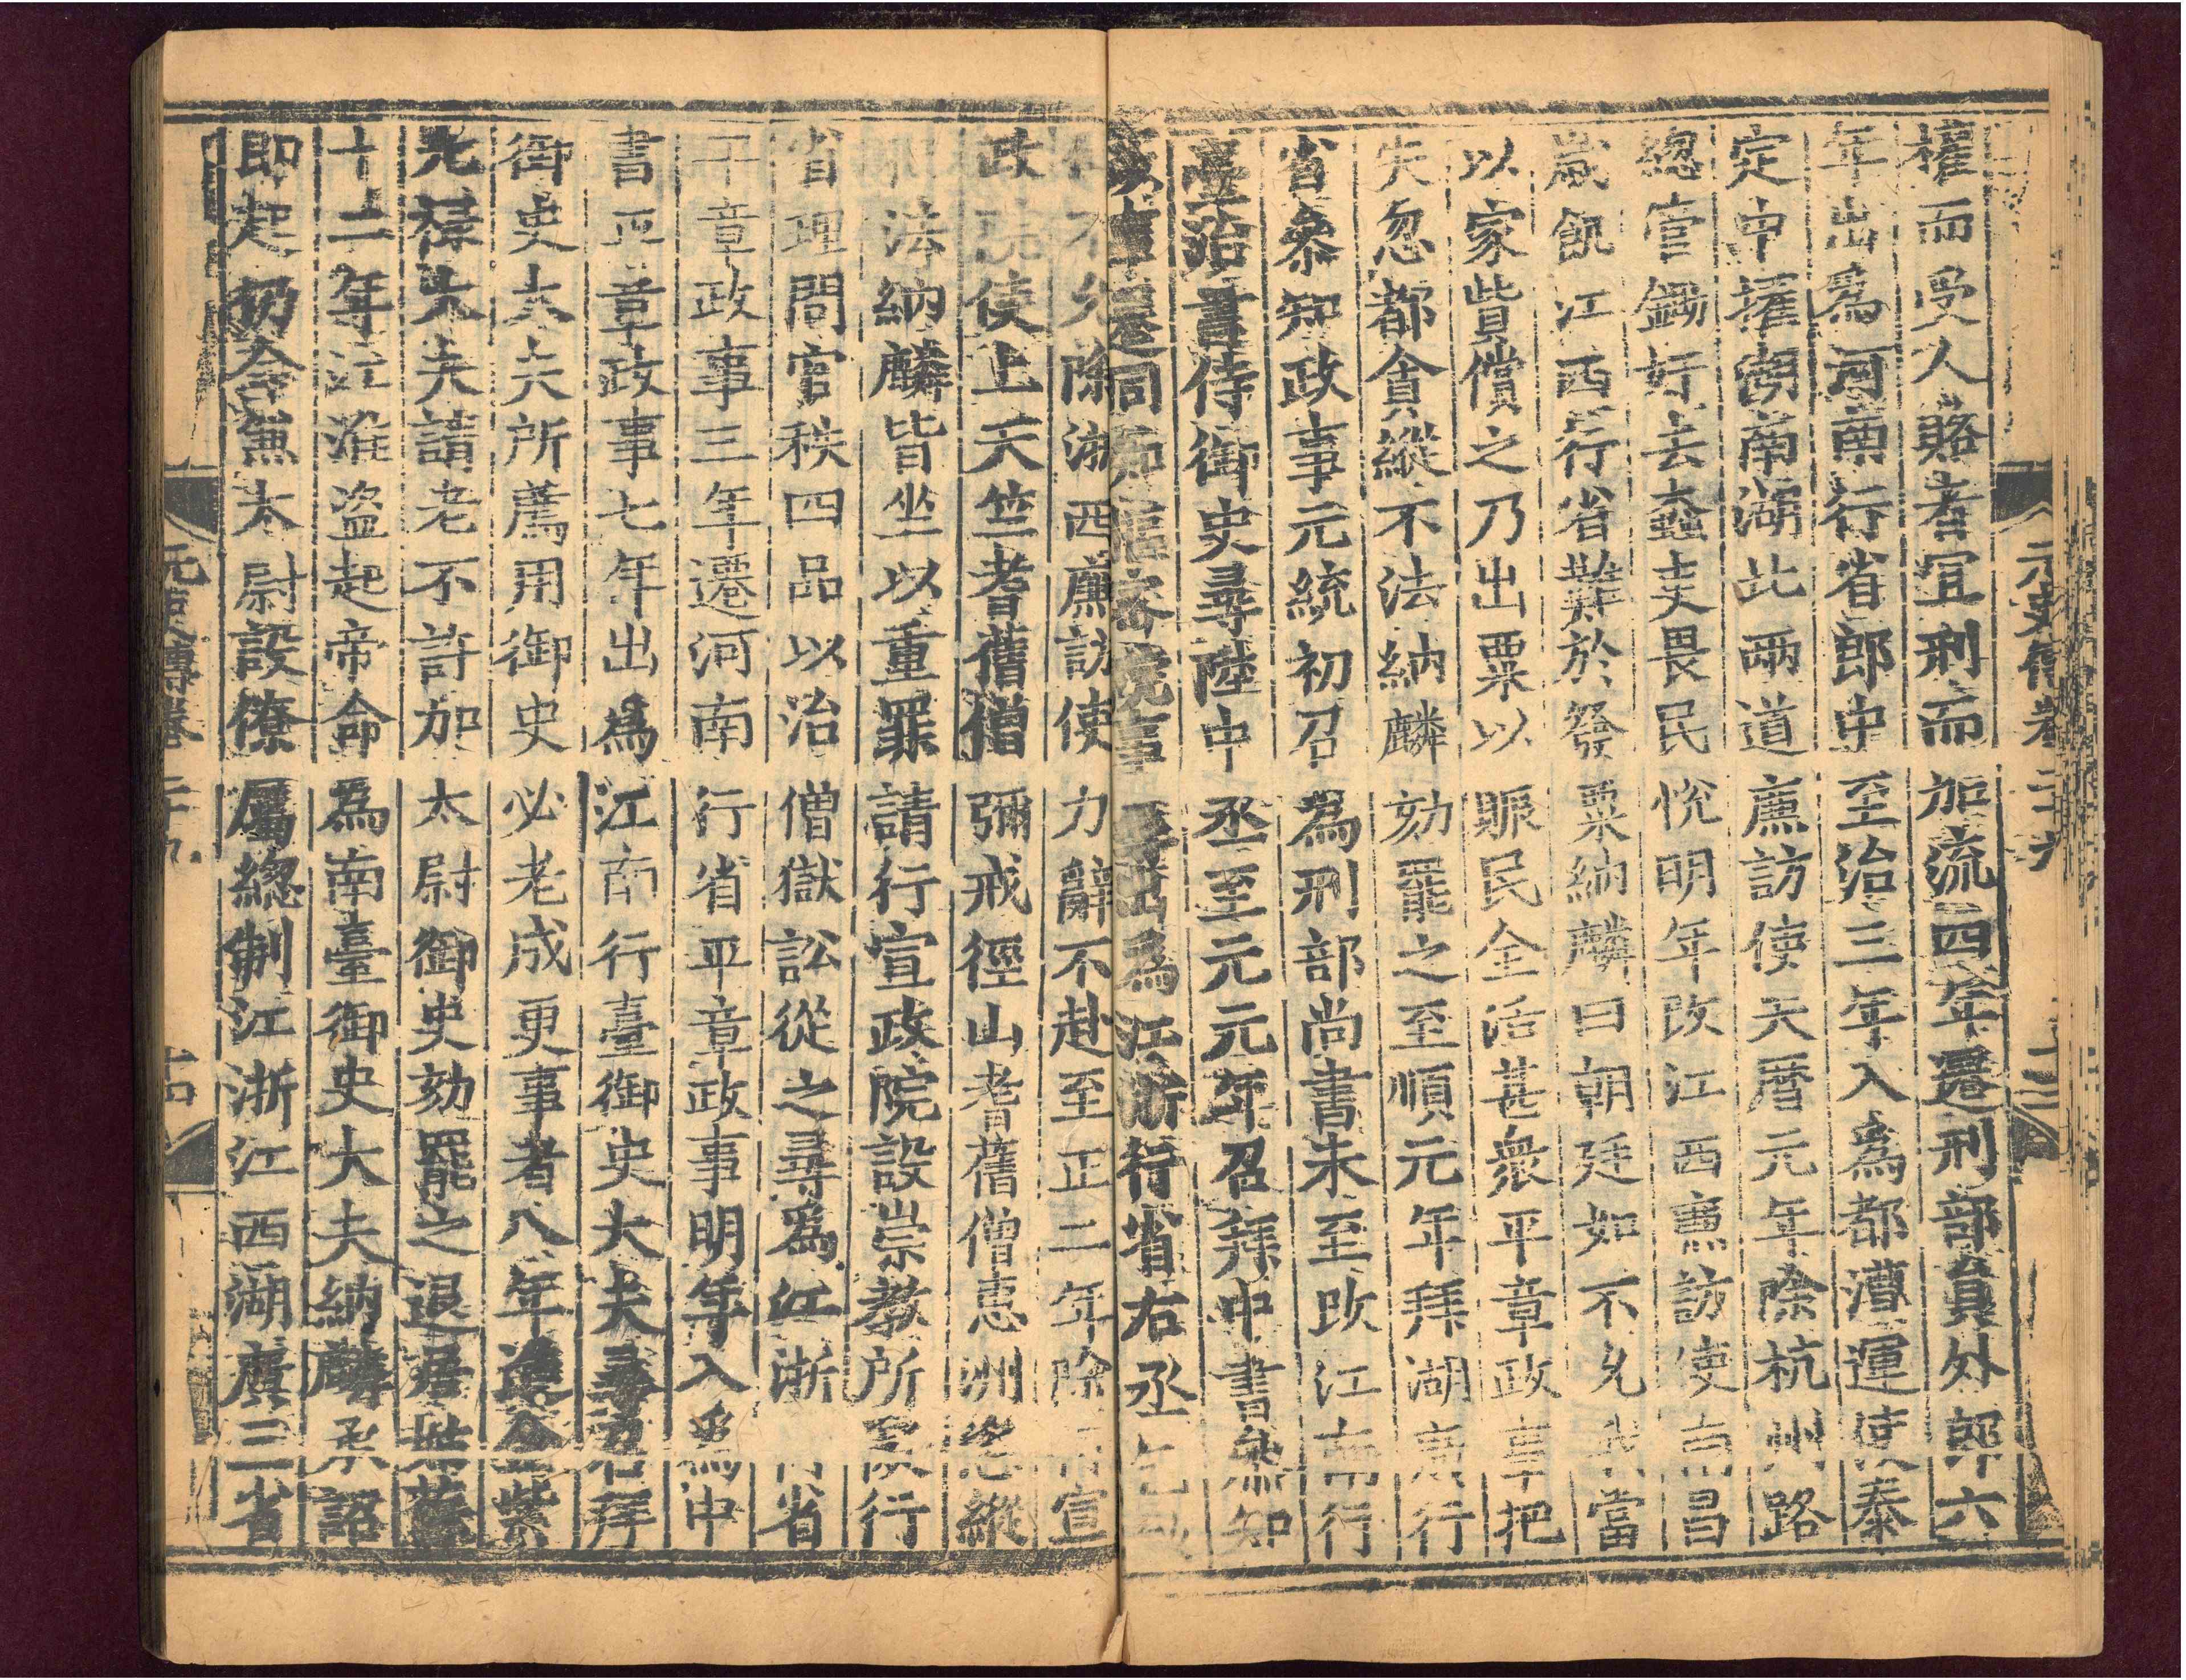 元史傳卷二十九 十三
權而受人賂者宜刑而加流四年遷刑部員外郎六
年出爲河南行省郎中至治三年入爲都漕運使泰
定中擢湖南湖北兩道廉訪使天曆元年除杭州路
總管鋤奸去蠹吏畏民悅明年改江西廉訪使南昌
歲飢江西行省難於發粟納麟曰朝廷如不允我當
以家貲償之乃出粟以賑民全活甚衆平章政事把
失忽都貪縱不法納麟劾罷之至順元年拜湖廣行
省參知政事元統初召爲刑部尚書未至改江南行
臺治書侍御史尋陞中丞至元元年召拜中書參知
政事遷同知樞密院事尋出爲江浙行省右丞乞致
仕不允除浙西廉訪使力辭不赴至正二年除行宣
政院使上天竺耆舊僧彌戒徑山耆舊僧惠洲恣縱
犯法納麟皆坐以重罪請行宣政院設崇教所擬行
省理問官秩四品以治僧獄訟從之尋爲江浙行省
平章政事三年遷河南行省平章政事明年入爲中
書平章政事七年出爲江南行臺御史大夫尋召拜
御史大夫所薦用御史必老成更事者八年進金紫
光祿大夫請老不許加太尉御史劾罷之退居姑蘇
十二年江淮盜起帝命爲南臺御史大夫納麟承詔
即起仍命兼太尉設僚屬總制江浙江西湖廣三省
元史傳卷二十九 十四